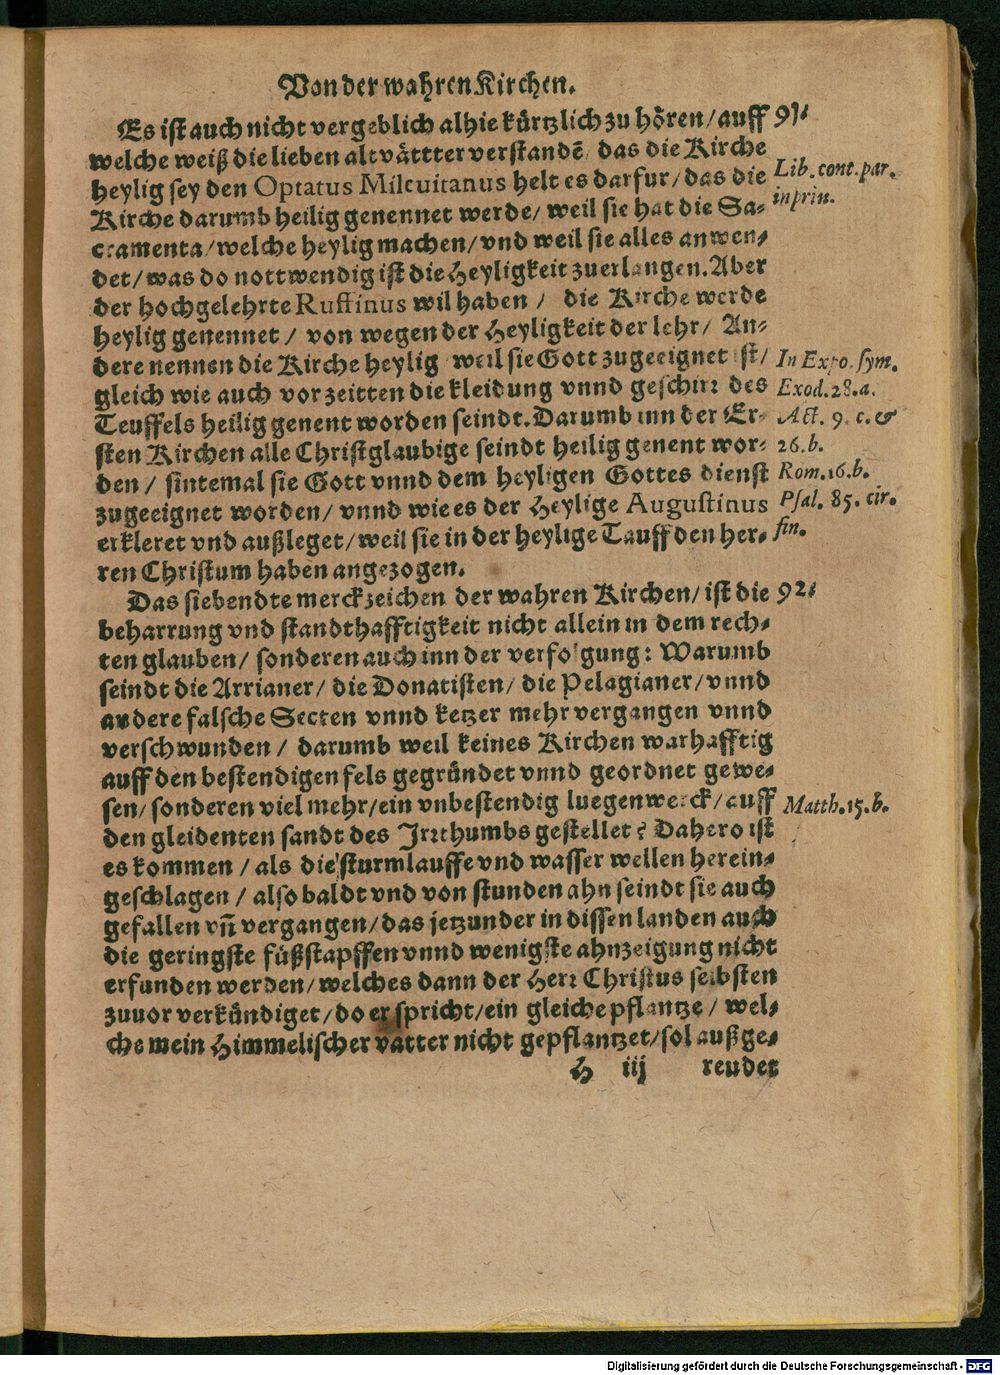 Von der wahren Kirchen.
Es ist auch nicht vergeblich alhie kürtzlich zu hören/ auff 91.
welche weiß die lieben altvättter verstandē/ das die Kirche
heylig sey den Optatus Mileuitanus helt es darfur/ das die Lib. cont. par.
Kirche darumb heilig genennet werde/ weil sie hat die Sa- in prin.
cramenta/ welche heylig machen/ vnd weil sie alles anwen-
det/ was do nottwendig ist die Heyligkeit zuerlangen. Aber
der hochgelehrte Ruffinus wil haben / die Kirche werde
heylig genennet / von wegen der Heyligkeit der lehr/ An-
dere nennen die Kirche heylig weil sie Gott zugeeignet ist/ In Expo. sym.
gleich wie auch vorzeitten die kleidung vnnd geschirr des Exod. 28. a.
Teuffels heilig genent worden seindt. Darumb inn der Er- Act. 9. c. &
sten Kirchen alle Christglaubige seindt heilig genent wor- 26. b.
den / sintemal sie Gott vnnd dem heyligen Gottes dienst Rom. 16. b.
zugeeignet worden/ vnnd wie es der Heylige Augustinus Psal. 85. cir.
erkleret vnd außleget/ weil sie in der heylige Tauff den her- fin.
ren Christum haben angezogen.
Das siebendte merckzeichen der wahren Kirchen/ ist die 92.
beharrung vnd standthafftigkeit nicht allein in dem rech-
ten glauben/ sonderen auch inn der verfolgung: Warumb
seindt die Arrianer/ die Donatisten/ die Pelagianer/ vnnd
andere falsche Secten vnnd ketzer mehr vergangen vnnd
verschwunden / darumb weil keines Kirchen warhafftig
auff den bestendigen fels gegründet vnnd geordnet gewe-
sen/ sonderen viel mehr/ ein vnbestendig luegenwerck/ auff Matth. 15. b.
den gleidenten sandt des Irrthumbs gestellet? Dahero ist
es kommen / als die sturmlauffe vnd wasser wellen herein-
geschlagen / also baldt vnd von stunden ahn seindt sie auch
gefallen vñ vergangen/ das jetzunder in dissen landen auch
die geringste füßstapffen vnnd wenigste ahnzeigung nicht
erfunden werden/ welches dann der Herr Christus selbsten
zuuor verkündiget/ do er spricht/ ein gleiche pflantze / wel-
che mein Himmelischer vatter nicht gepflantzet/ sol außge-
H iij reudet
Digitalisierung gefördert durch die Deutsche Forschungsgemeinschaft - DFG